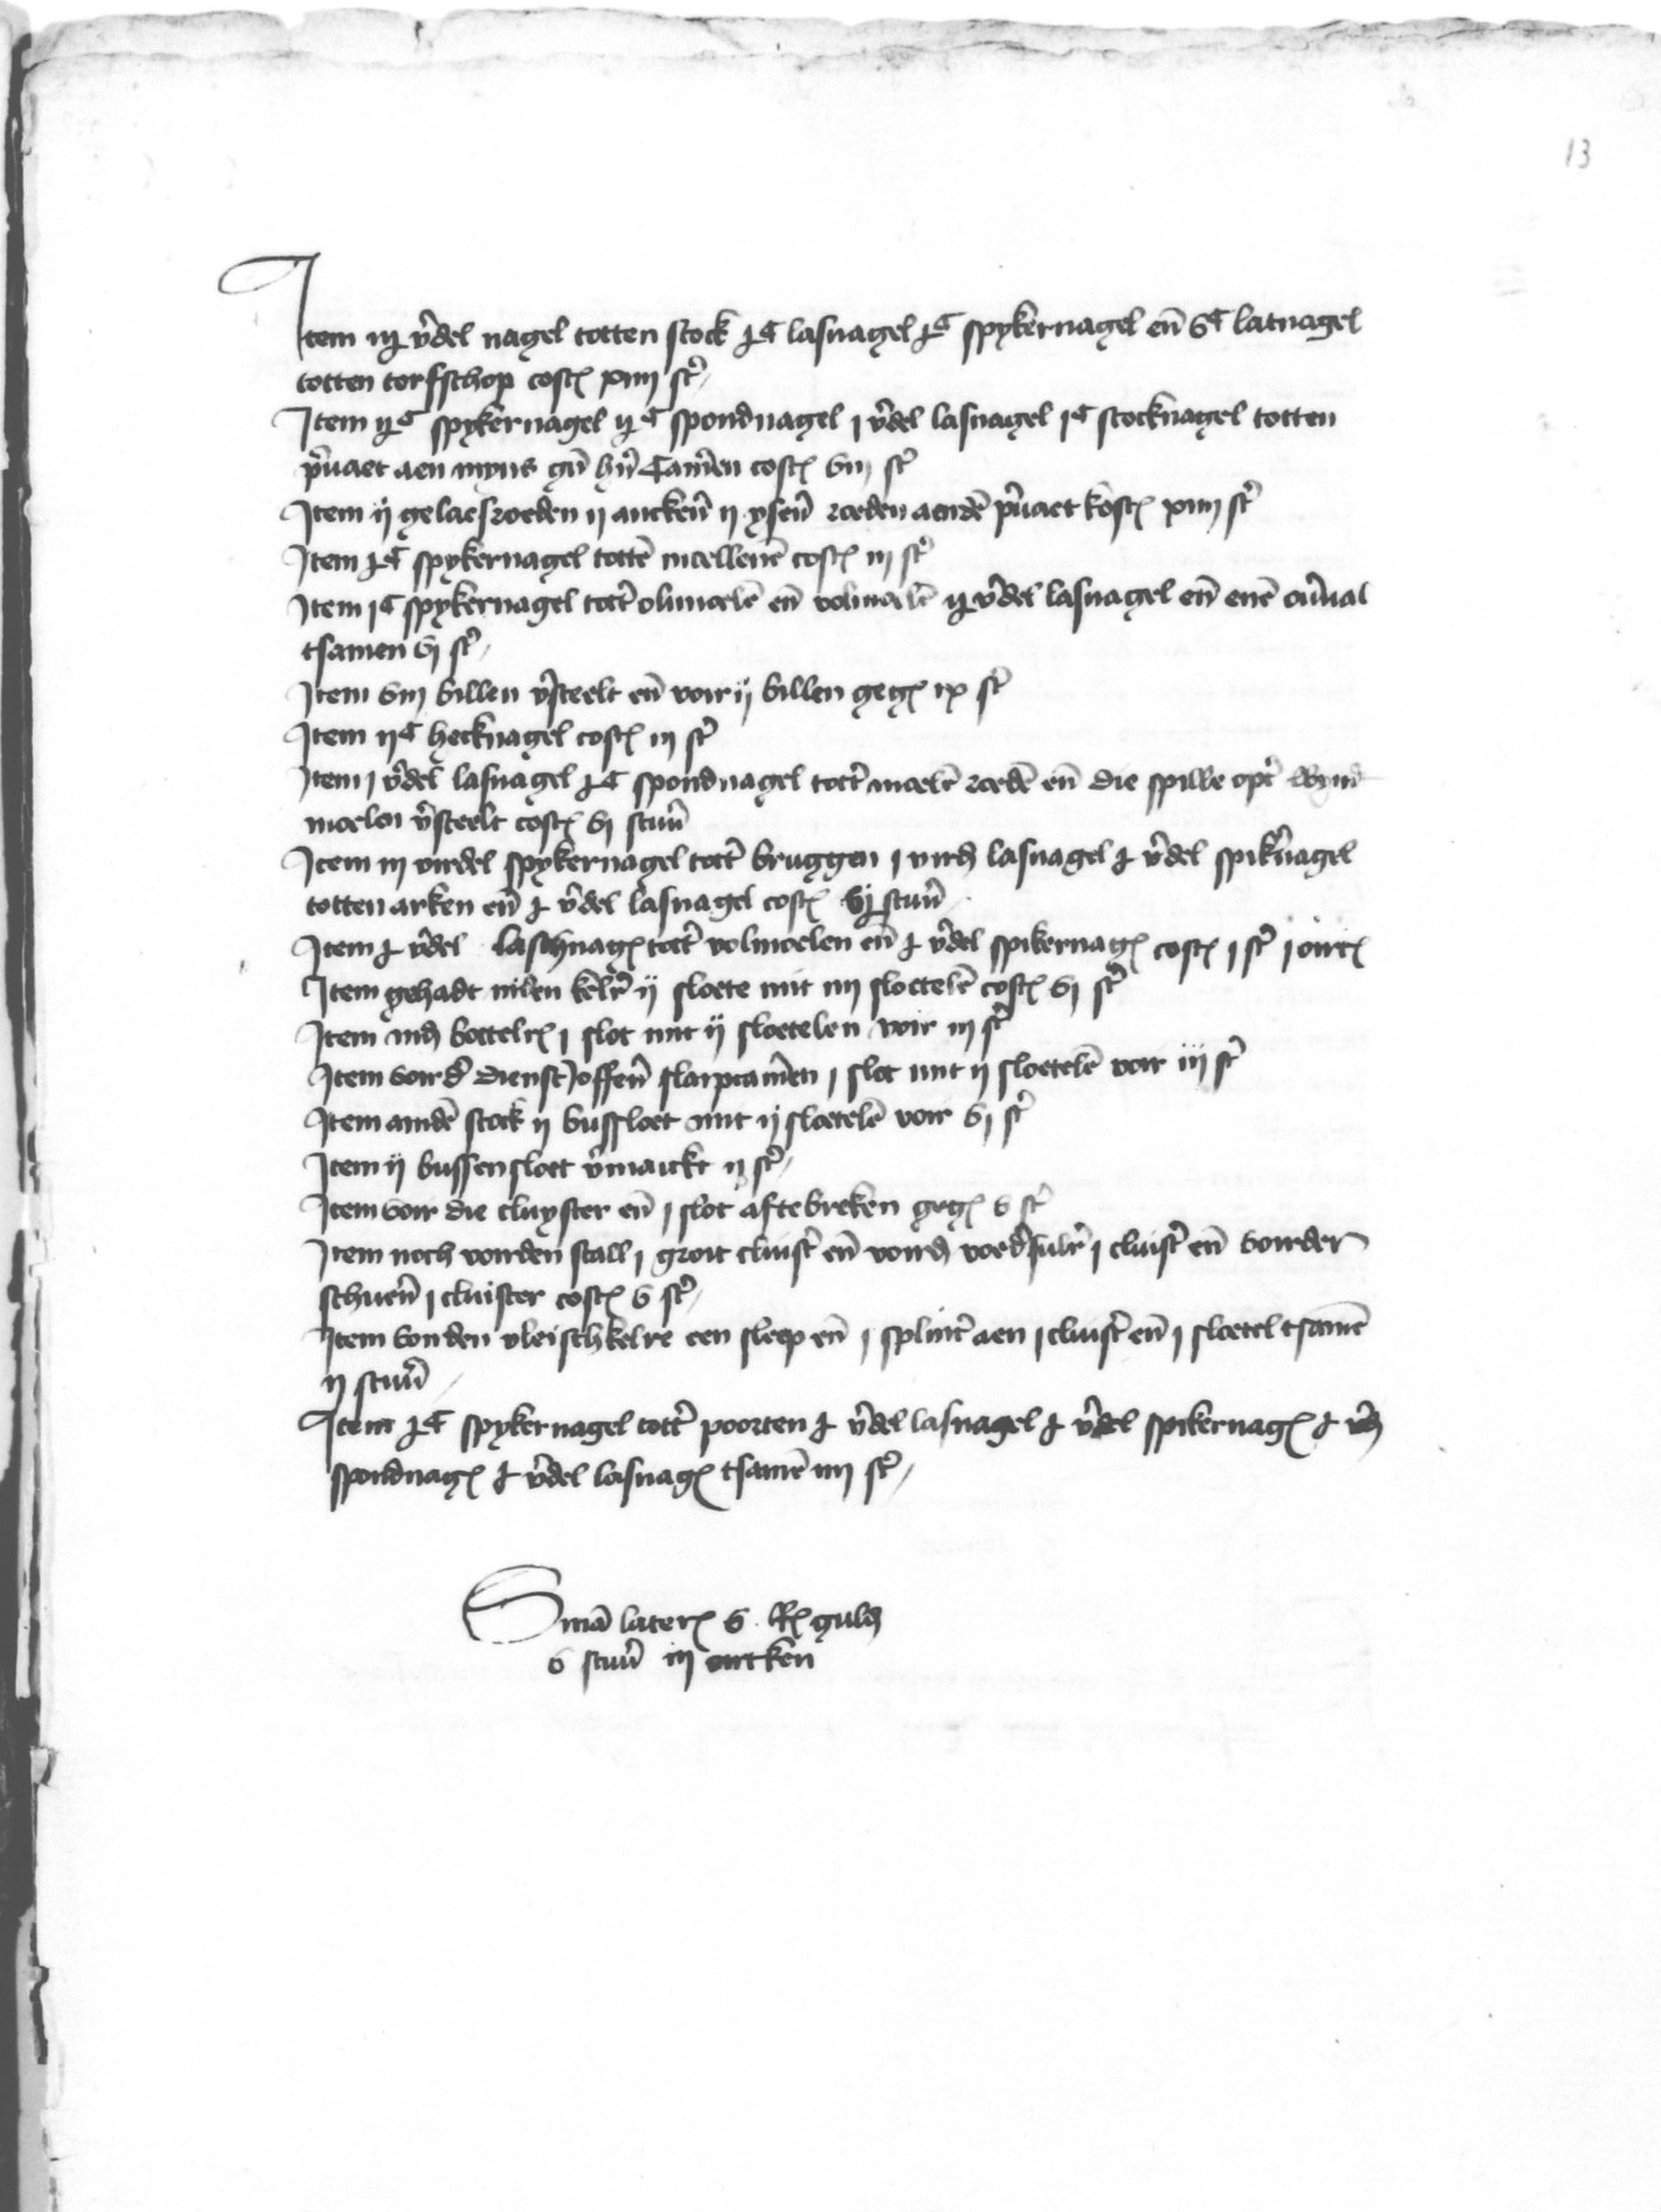 13
Item iij v̄del nagel totten stock j½ᶜ lasnagel j½ᶜ spykernagel en̄ vᶜ latnagel
totten torfschop cost₎ xiiij st̄
Item ij½ᶜ spykernagel ij½ᶜ spondnagel j v̄del lasnagel jᶜ stocknagel totten
p̄uaet aen myns gn̄ hn̄ Camen cost₎ viij st̄
Item ij gelaesroeden ij ancken̄ ij ysen̄ roeden aendē p̄uaet kost₎ xiiij st̄
Item j½ᶜ spykernagel tottē moellenē cost₎ iij st̄
Item jᶜ spykernagel tott̄ olimoelē en̄ volmoelē ij½ v̄del lasnagel en̄ enē ou̅ual
tsamen vj st̄
Item viij billen v̄steelt en̄ voir ij billen geg₎ ix st̄
Item ijᶜ hecknagel cost₎ iij st̄
Item j v̄del lasnagel j½ᶜ spondnagel tott̄ moelē roedē en̄ die spille opt̄ wynd
moelen v̄steelt cost₎ vj stuu̅
Item iij virdel spykernagel tott̄ bruggen j vird₎ lasnagel ½ v̄del spikn̄agel
totten arken en̄ ½ v̄del lasnagel cost₎ vj½ stuu̅
Item ½ v̄del laschnag₎ tott̄ volmoelen en̄ ½ v̄del spikernag₎ cost₎ j st̄ j oirt₎
Item gehadt inden kelr̄ ij sloete mit iiij sloetelē cost₎ vj st̄
Item ind₎ bottelr₎ j slot mit ij sloetelen voir iij st̄
Item voird̄ dienst₎offen̄ slaipcamen j slot mit ij sloetelē voir iij st̄
Item aindē stock ij bussloet mit ij sloetelē voir vj st̄
Item ij bussensloet v̄maickt ij st̄
Item voir die cluyster en̄ j slot aftebreken geg₎ v st̄
Item noch voirden stall j groit cluist̄ en̄ voird₎ voed̄sulr̄ j cluist̄ en̄ voirder
schuen̄ j cluister cost₎ v st̄
Item vonden vleischkelre een sleep en̄ j splint̄ aen j cluist̄ en̄ j sloetel tsamē
ij stuu̅
Item j½ᶜ spykernagel tott̄ poorten ½ v̄del lasnagel ½ v̄del spikernag₎ ½ v̄d₎
spondnag₎ ½ v̄del lasnag₎ tsamē iiij st̄
Sum̄a later₎ v R₎ guld₎
v stuu̅ iij oirtken